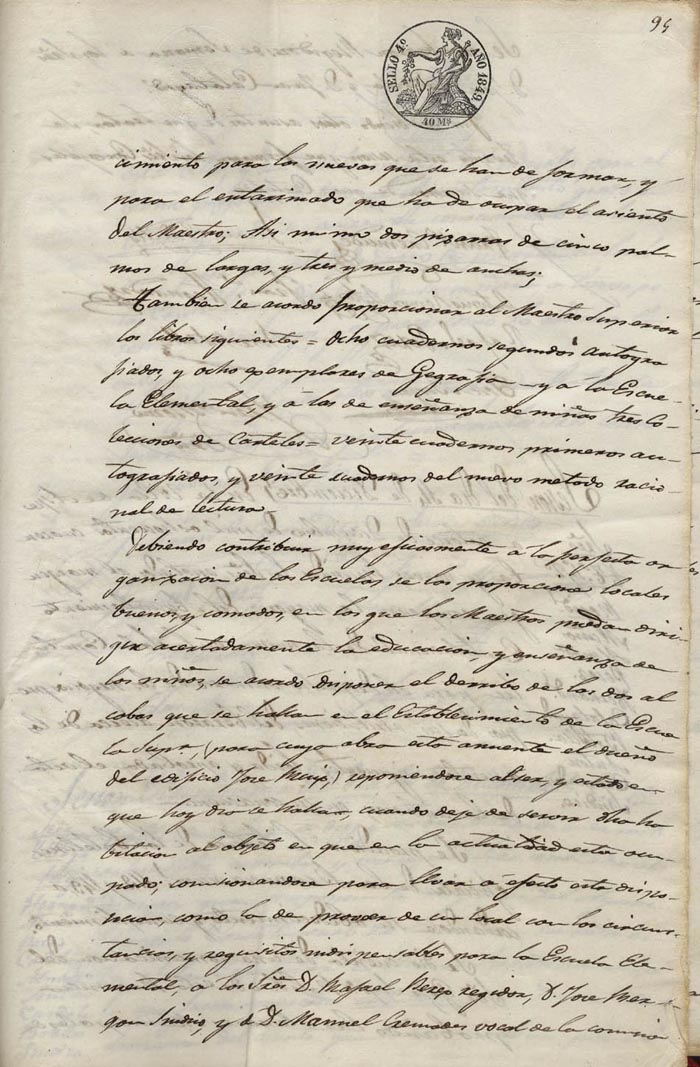 95
SELLO 4º AÑO 1849.
40 Ms
cimiento para los nuevos que se han de formar, y
para el entarimado que ha de ocupar el asiento
del Maestro; Asi mismo dos pizarras de cinco pal-
mos de largas, y tres y medio de anchas;
Tambien se acordo proporcionar al Maestro Superior
los libros siguientes = ocho cuadernos segundos autogra
fiados, y ocho exemplares de Gegrafia = y a la Escue
la Elemental, y á las de enseñanza de niñas tres co-
lecciones de Carteles = veinte cuadernos primeros au-
tografiados, y veinte cuadernos del nuevo metodo racio-
nal de lectura =
Debiendo contribuir muy eficasmente a la perfecta or
ganizacion de las Escuelas se las proporcione locales
buenos, y comodos, en los que los Maestros puedan diri
gir acertadamente la educacion, y enseñanza de
los niños, se acordó disponer el derribo de las dos al
cobas que se hallan en el Establecimiento de la Escue
la Supr, (para cuya obra esta anuente el dueño
del edificio Jose) reponiendose al ser, y estado en
que hoy dia se hallan, cuando deje de servir dha ha
bitacion al objeto en que en la actualidad esta ocu-
pado; comisionandose para llevar á efecto esta dispo-
sicion, como la de proveer de un local con las circuns-
tancias, y requisitos indispensables para la Escuela Ele-
mental, a los Sres D. Rafael Perez regidor, D. Jose
Sindico, y á D. Manuel Cremades vocal de la comisio